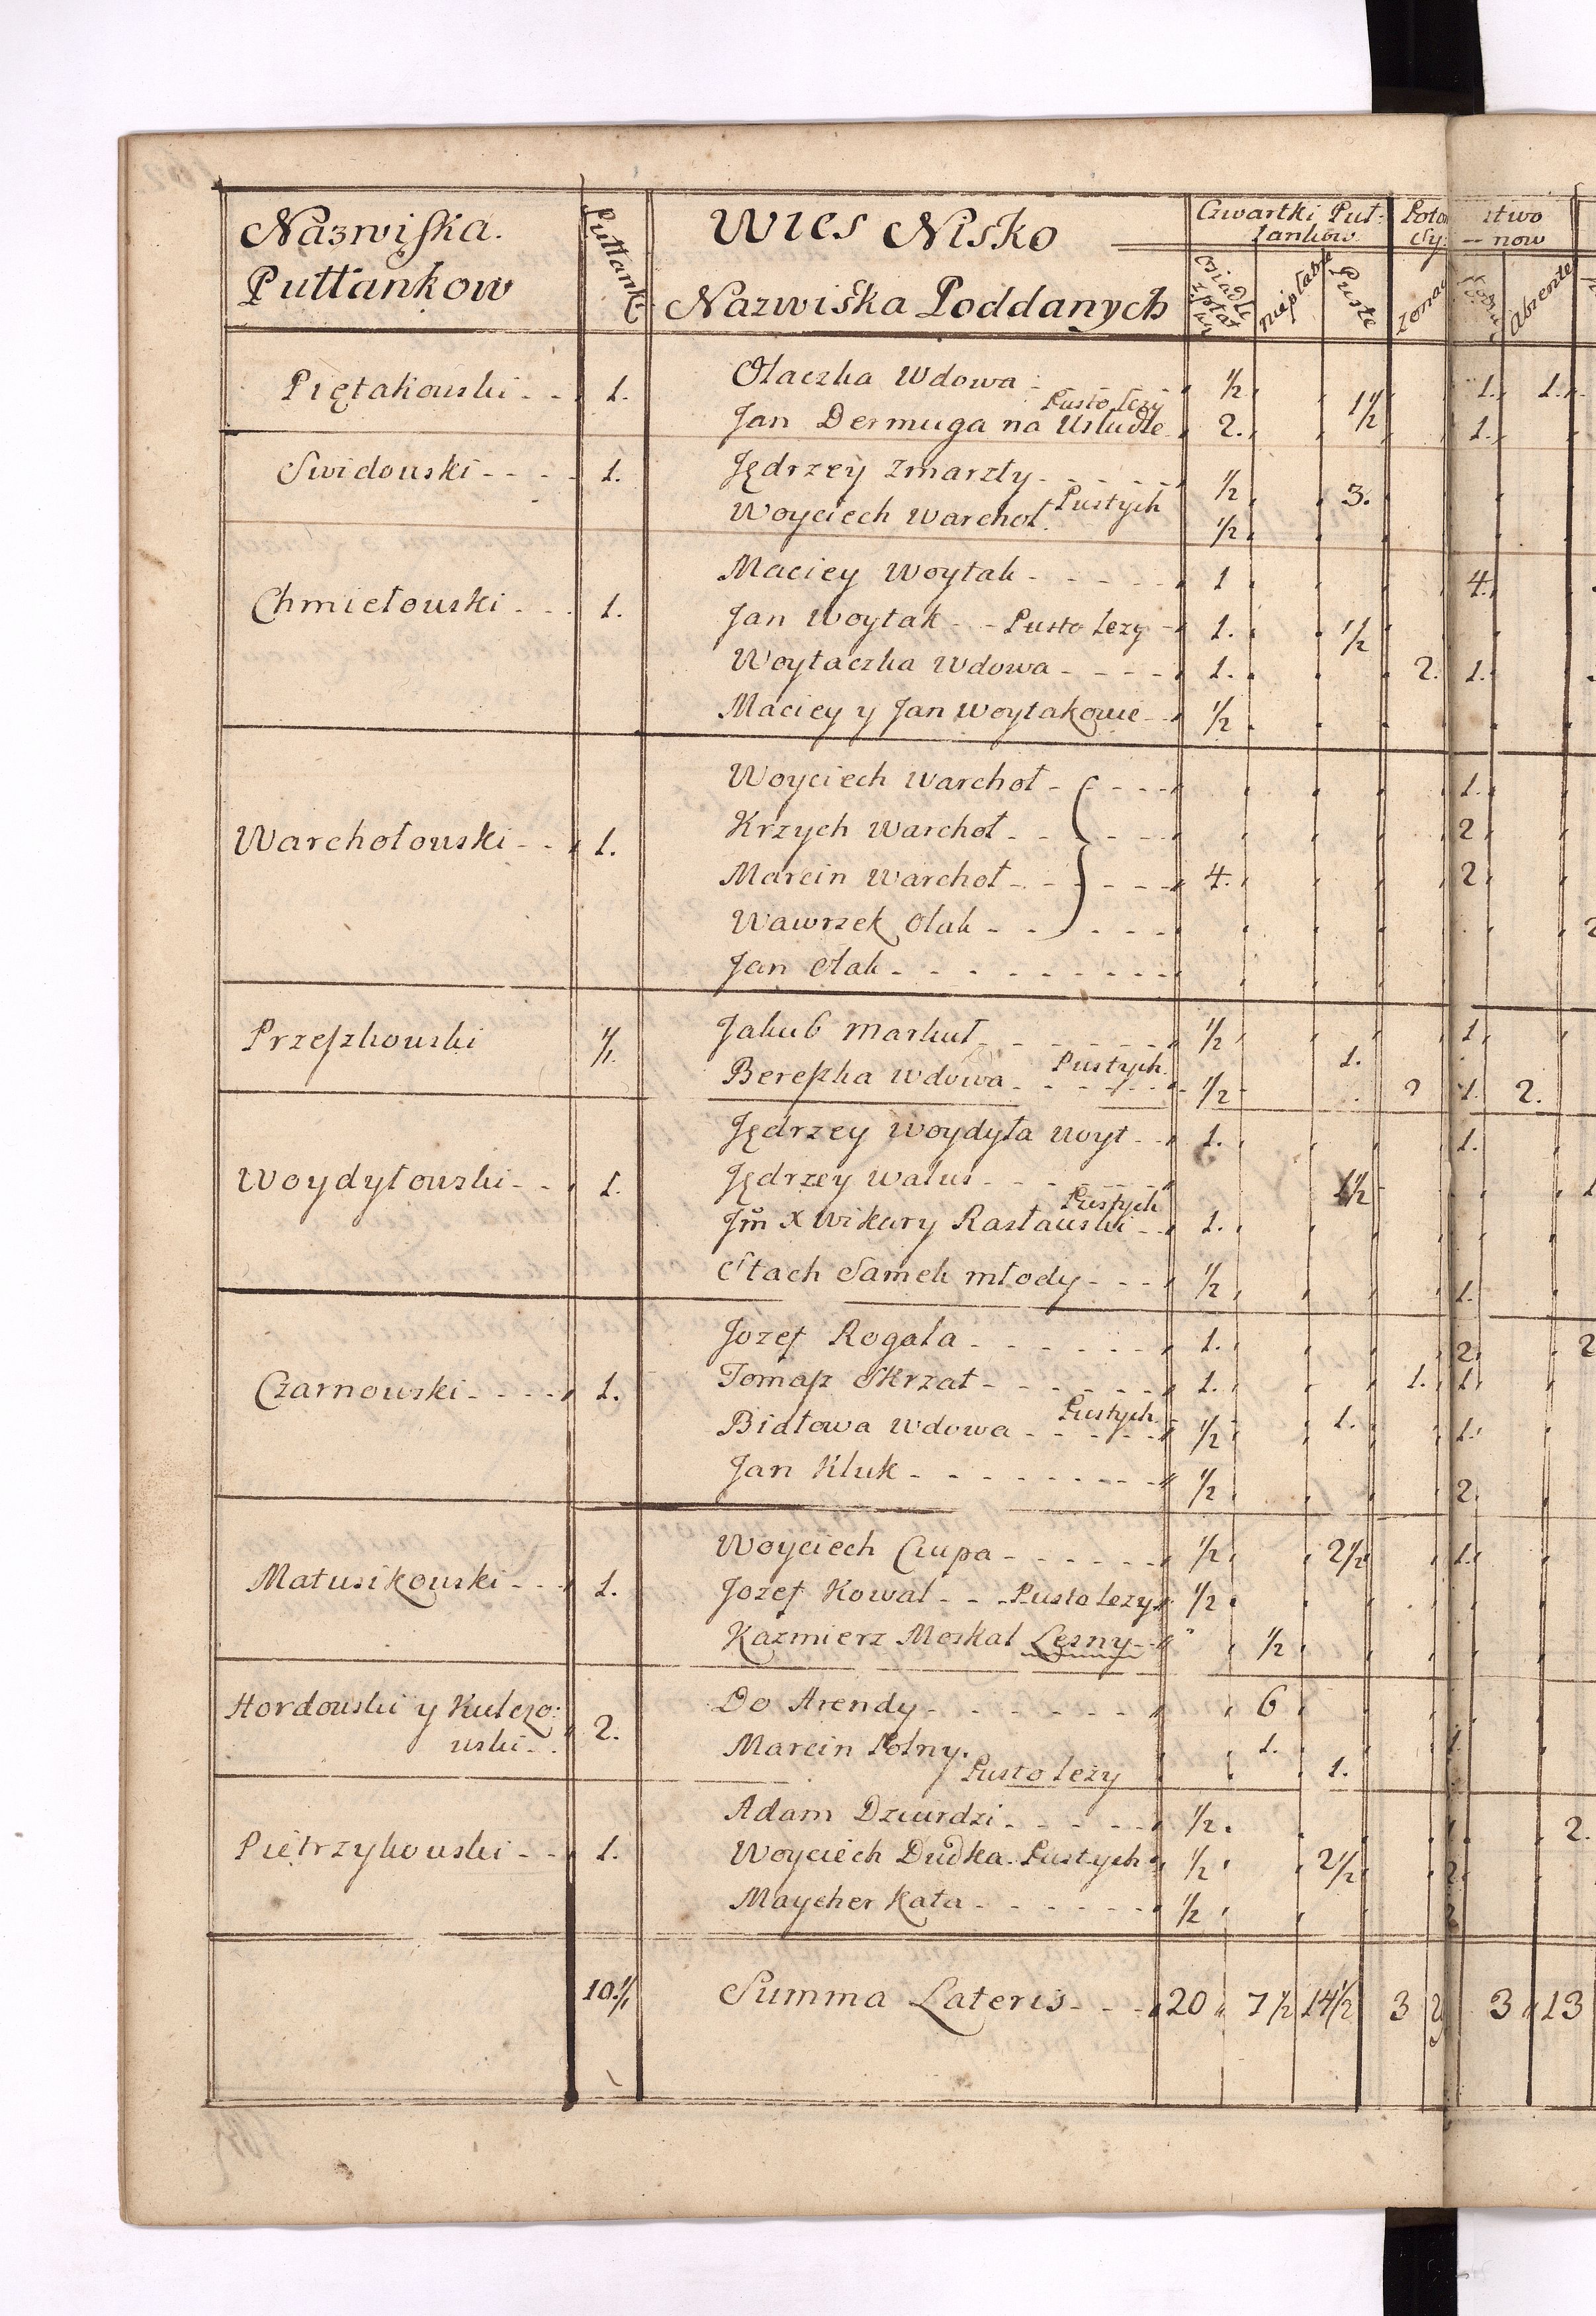 Nazwiska.
Pułłankow
Pułłanki
Wies Nisko
Nazwiska Poddanych
Czwartki Puł:
łankow
Osiadłe
Niepłatne
Puste
stwo
now
Absente
Piętakowski - - 1. Olaczka Wdowa 1/2 1. 1.
Pusto leży 1 1/2
Jan Dermuga na Usłudze 2. 1.
Swidowski - - - - 1. Jędrzey Zmarzły - - - - 1/2
Pustych 3.
Woyciech Warchoł 1/2
Chmiełowski - - 1. Maciey Woytak - - - - - 1 4.
Jan Woytak - - Pusto leży - 1. 1/2
Woytaczka Wdowa - - - - 1. 2. 1.
Maciey y Jan Woytakowie - 1/2
Warchołowski - - 1. Woyciech Warchoł - - - - 1.
Krzych Warchoł - - - - - 2
Marcin Warchoł - - - - - 4. 2
Wawrzek Olak - - - - -
Jan Olak - - - - - - - - -
Przeszkowski 1/1 Jakub Markut - - - - - 1/2 1.
Pustych 1.
Bereszka Wdowa - - - - - 1/2 2 1. 2.
Woydyłowski - - 1. Jędrzey Woydyła Woyt - - 1. 1.
Jędrzey Walus - - - - -
Pustych 1 1/2
Jm̃ X Wikary Rasławski - 1.
Stach Samek młody - - - 1/2 1.
Czarnowski - - - - 1. Jozef Rogala - - - - - - 1. 2. 2
Tomasz Skrzat - - - - - - 1. 1. 1.
Pustych 1.
Bidłowa Wdowa - - - - - 1/2 1.
Jan Kluk - - - - - - - - 1/2 2.
Matusikowski - - 1. Woyciech Czupa - - - - - - 1/2 2 1/2 1.
Jozef Kowal - - - Pusto leży 1/2
Kazmierz Moskal Lesny - 1/2
Hordowski y Kulczo:
wski - . 2. Do Arendy - - - - - - - 6
Marcin Polny. 1. 1.
Pusto leży 1.
Pietrzykowski - - 1. Adam Dziurdzi - - - - - 1/2. 2.
Woyciech Dudka. Pustych 1/2 2 1/2 2
Maycher Kata - - - - - - 1/2
10 1/1 Summa Lateris - - - 20 7 1/2 14 1/2 3 3 13